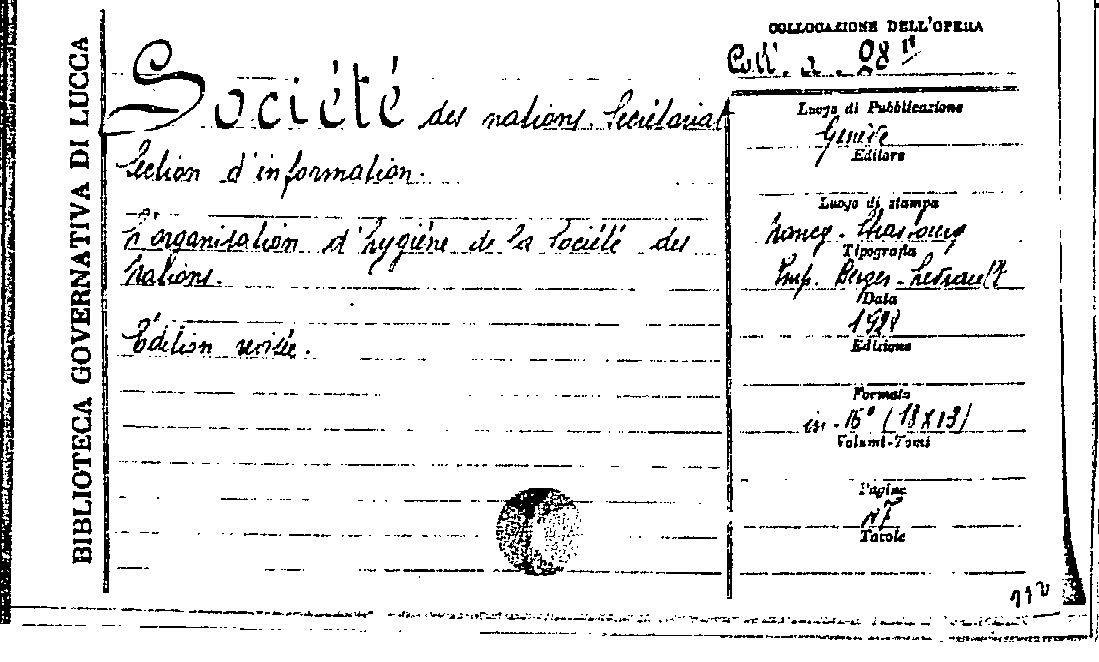 BIBLIOTECA GOVERNATIVA DI LUCCA
COLLOCAZIONE DELL'OPERA
Coll. a. 98
Société des nations. Secrétariat
Section d'information.
L'organisation d'hygiène de la Société des
Nations.
Édition revisée.
Luogo di Pubblicazione
Genève
Editore
Luogo di stampa
Nancy - Strasbourg
Tipografia
Imp. Berger-Levrault
Data
1928
Edizione
Formato
in-16° (18x13)
Volumi-Tomi
Pagine
47
Tavole